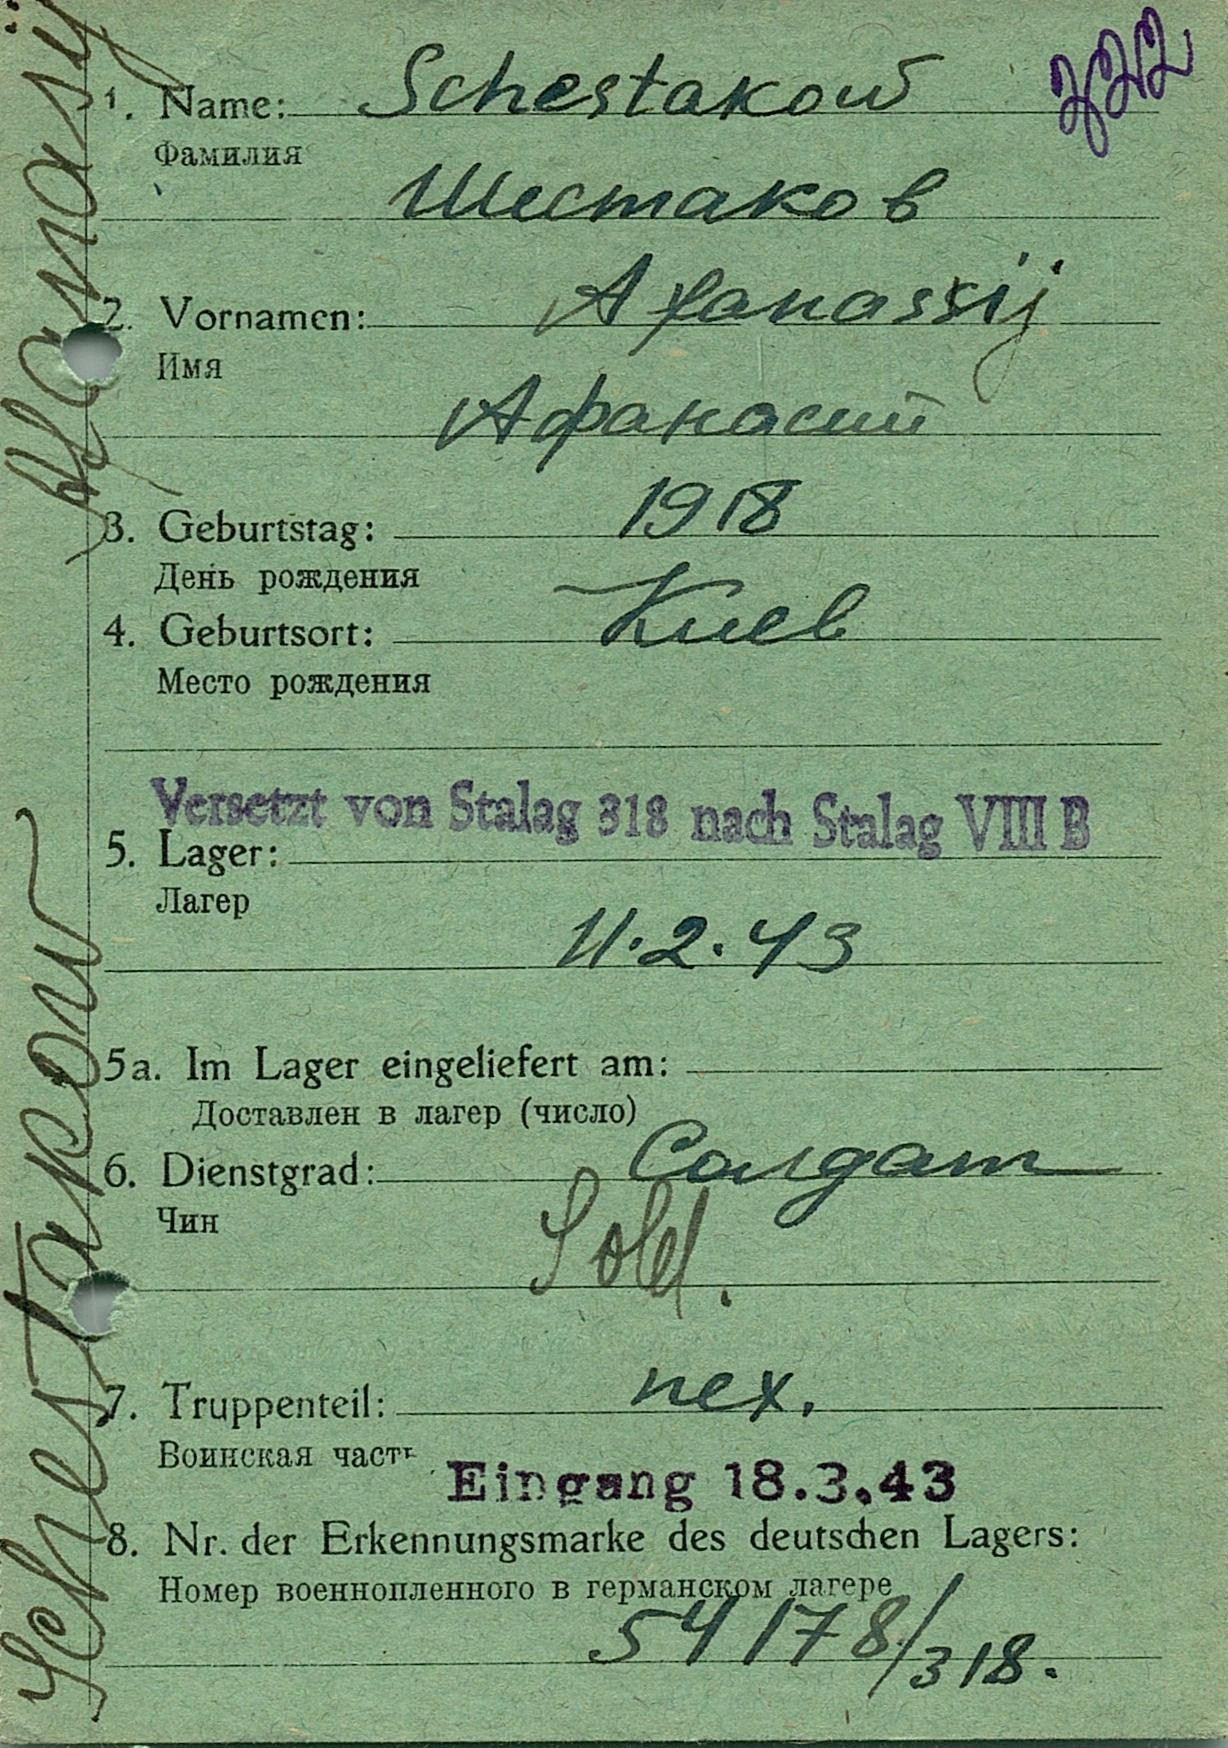 222
1. Name: Schestakow
Фамилия
Шестаков
2. Vornamen: Afanassij
Имя
Афанасий
3. Geburtstag: 1918
День рождения
4. Geburtsort: Киев
Место рождения
Versetzt von Stalag 318 nach Stalag VIII B
5. Lager:
Лагер
11.2.43
5a. Im Lager eingeliefert am:
Доставлен в лагер (число)
6. Dienstgrad: Солдат
Чин
Sold.
7. Truppenteil: пех.
Воинская часть
Eingang 18.3.43
8. Nr. der Erkennungsmarke des deutschen Lagers:
Номер военнопленного в германском лагере
54178/318.
Schestakow Afanasij